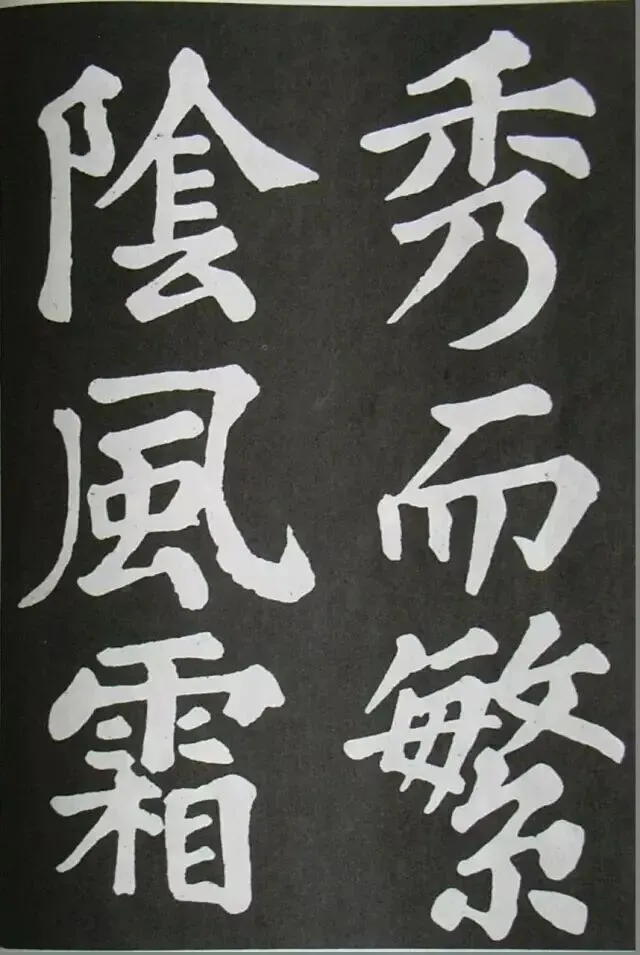 秀而繁
陰風霜